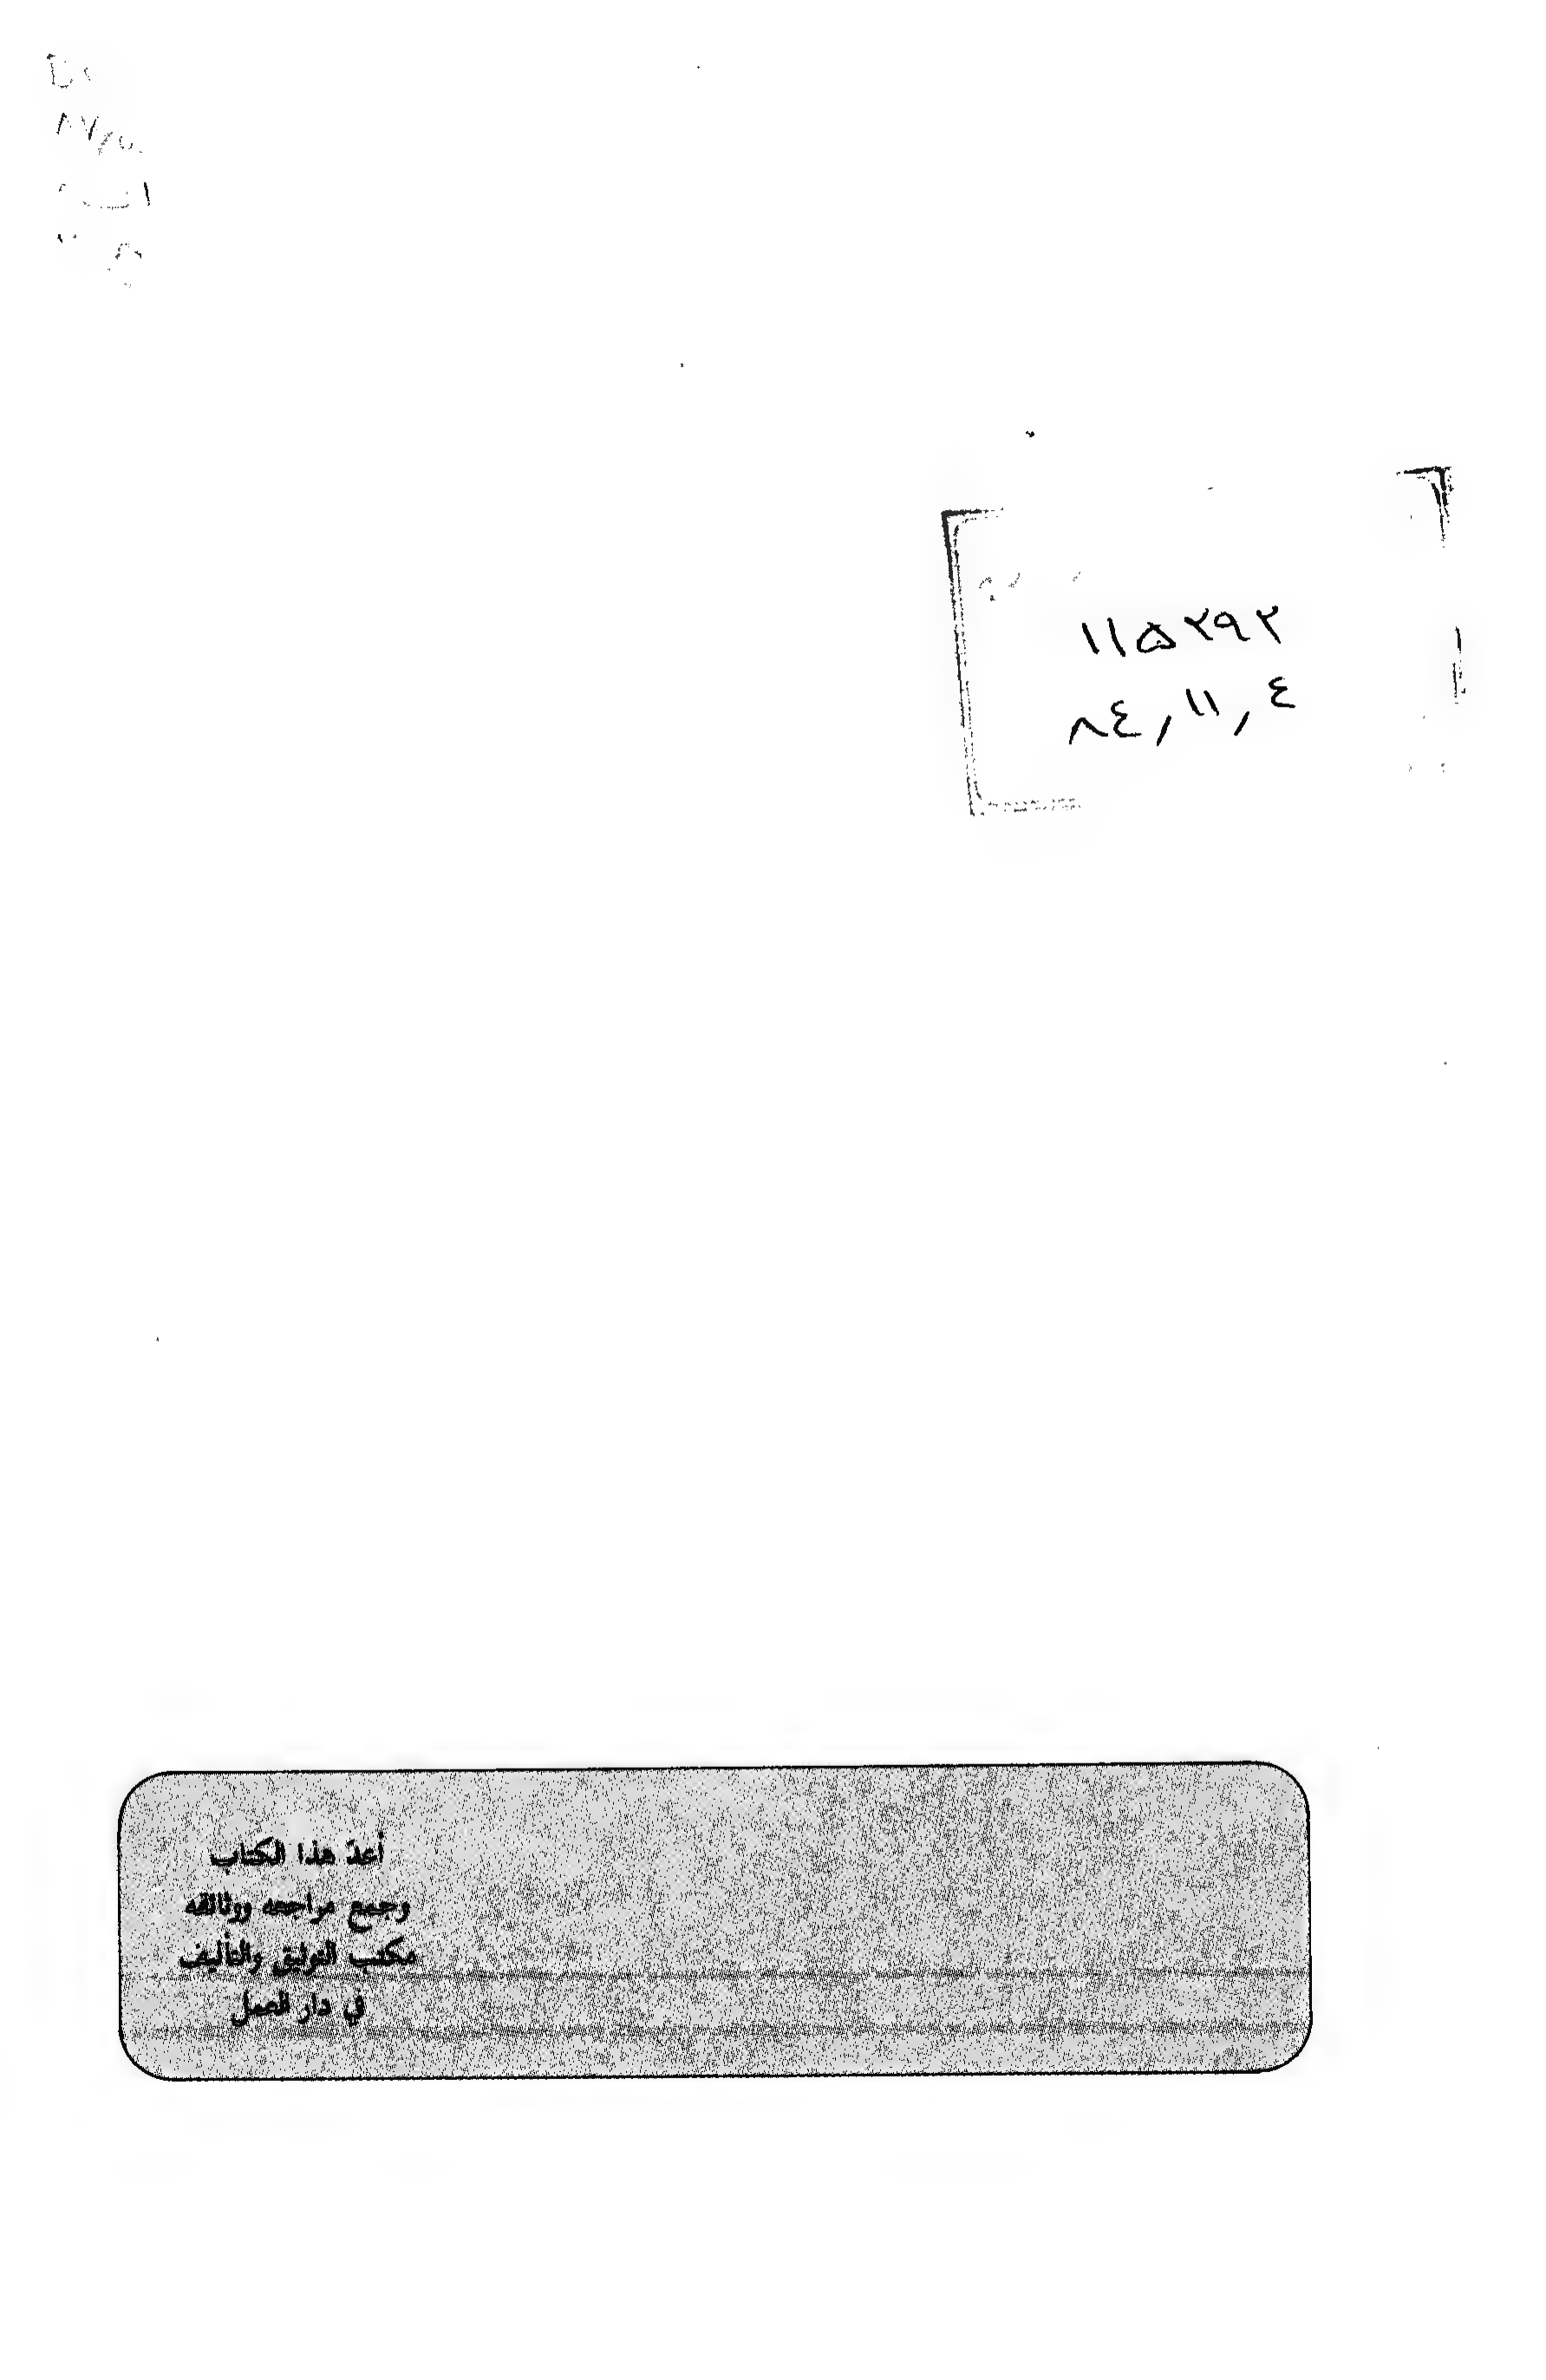 ١١۵٢٩٢
٨٤,١١,٤
أعدّ هذا الكتاب
وجمع مراجعه ووثائقه
مكتب التوثيق والتأليف
في دار العمل